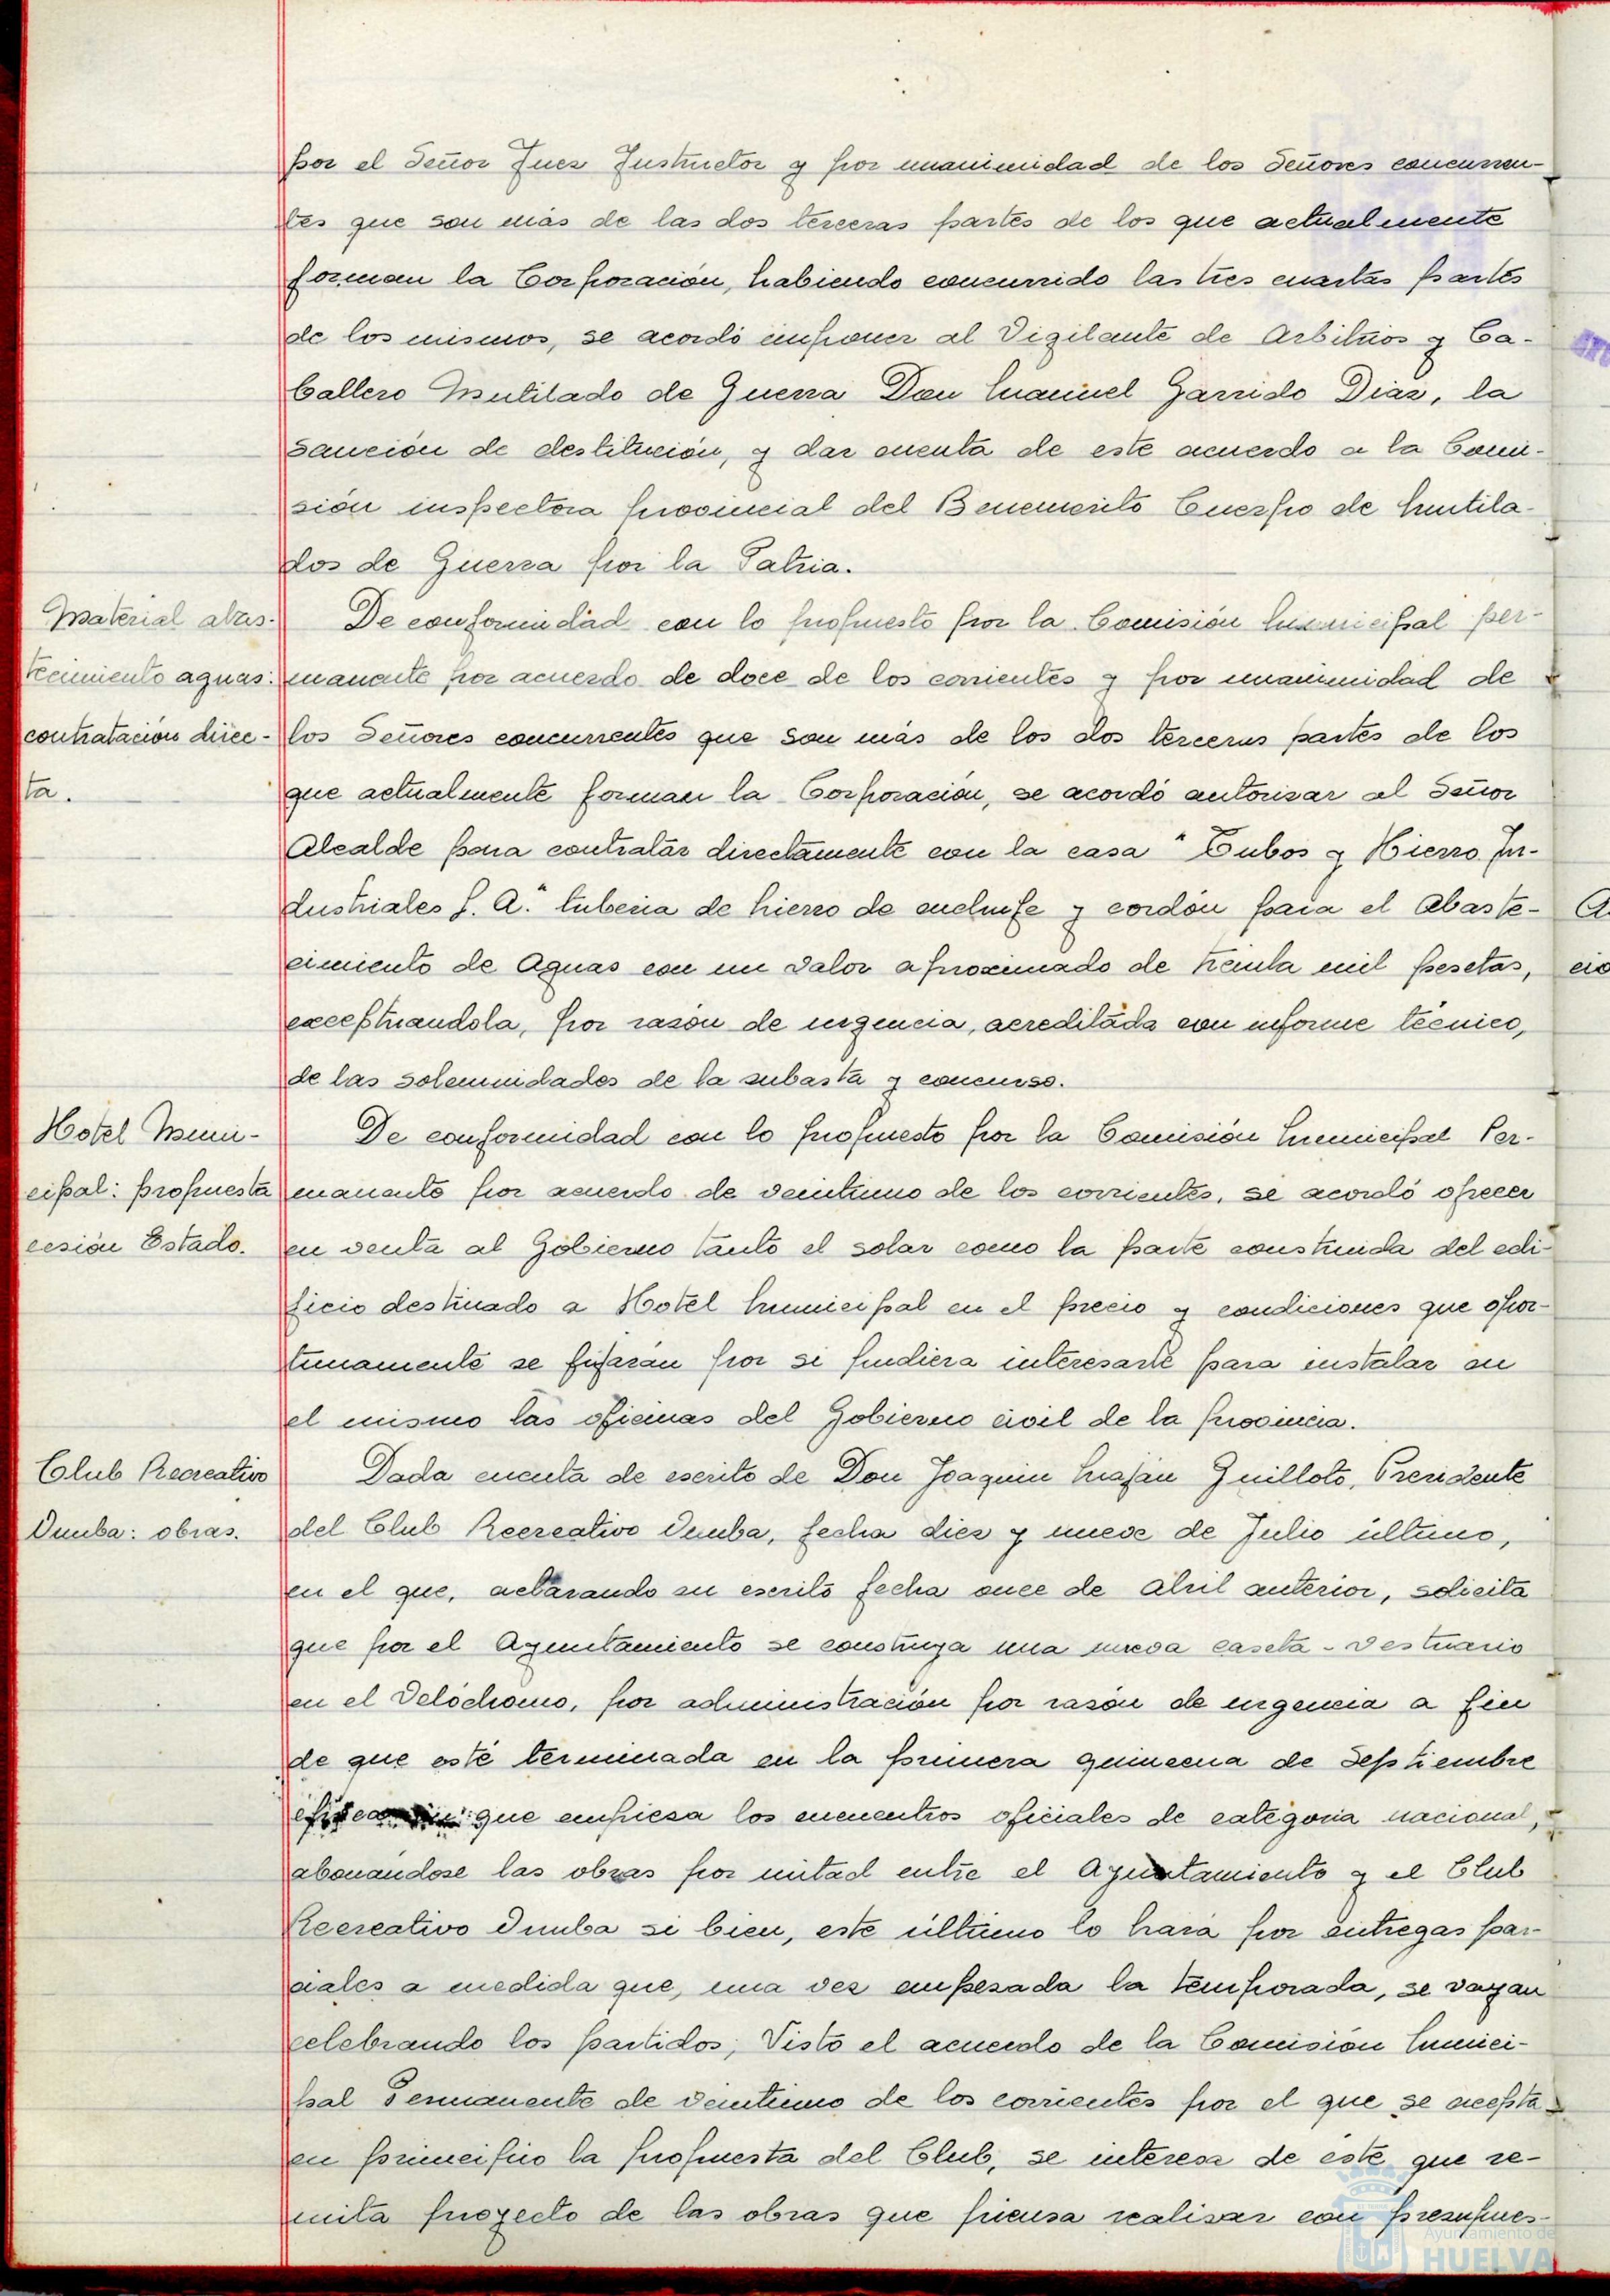 por el Señor Juez Instructor y por unanimidad de los Señores concurren-
tes que son más de las dos terceras partes de los que actualmente
forman la Corporación, habiendo concurrido las tres cuartas partes
de los mismos, se acordó imponer al Vigilante de Arbitrios y Ca-
ballero Mutilado de Guerra Don Manuel Garrido Diaz, la
sanción de destitución, y dar cuenta de este acuerdo a la Comi-
sión inspectora provincial del Benemerito Cuerpo de Mutila-
dos de Guerra por la Patria.
Material abas-
tecimiento aguas:
contratación direc-
ta.
De conformidad con lo propuesto por la Comisión Municipal per-
manente por acuerdo de doce de los corrientes y por unanimidad de
los Señores concurrentes que son más de los dos terceras partes de los
que actualmente forman la Corporación, se acordó autorizar al Señor
Alcalde para contratar directamente con la casa "Tubos y Hierro In-
dustriales S. A." tuberia de hierro de enchufe y cordón para el Abaste-
cimiento de Aguas con un valor aproximado de treinta mil pesetas,
exceptuandola, por razón de urgencia, acreditada con informe técnico,
de las solemnidades de la subasta y concurso.
Hotel Muni-
cipal: propuesta
cesión Estado.
De conformidad con lo propuesto por la Comisión Municipal Per-
manente por acuerdo de veintiuno de los corrientes, se acordó ofrecer
en venta al Gobierno tanto el solar como la parte construida del edi-
ficio destinado a Hotel Municipal en el precio y condiciones que opor-
tunamente se fijarán por si pudiera interesarle para instalar en
el mismo las oficinas del Gobierno civil de la provincia.
Club Recreativo
Onuba: obras.
Dada cuenta de escrito de Don Joaquin Maján Guilloto, Presidente
del Club Recreativo Onuba, fecha diez y nueve de Julio último,
en el que, aclarando su escrito fecha once de Abril anterior, solicita
que por el Ayuntamiento se construya una nueva caseta-vestuario
en el Velódromo, por administración por razón de urgencia a fin
de que esté terminada en la primera quincena de Septiembre
época en que empieza los encuentros oficiales de categoria nacional,
abonándose las obras por mitad entre el Ayuntamiento y el Club
Recreativo Onuba si bien, este último lo hará por entregas par-
ciales a medida que, una vez empezada la temporada, se vayan
celebrando los partidos; Visto el acuerdo de la Comisión Munici-
pal Permanente de veintiuno de los corrientes por el que se acepta
en principio la propuesta del Club, se interesa de este que re-
mita proyecto de las obras que piensa realizar con presupues-
Ayuntamiento de
HUELVA